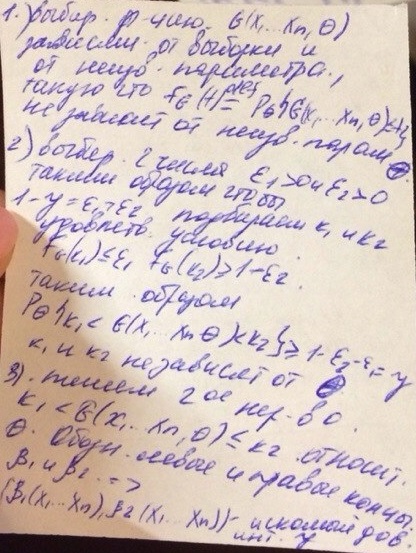 1.) выбир. ф-цию. G(x₁...xₙ, θ)
зависящ. от выборки и
от неизв. параметра,
такую что F_G(t) = P_θ{G(x₁,...xₙ, θ)<t}
не зависит от неизв. парам θ
2) выбер. 2 числа ε₁>0 и ε₂>0
таким образом чтобы
1-γ=ε₁+ε₂ подбираем k₁ и k₂
удовлетв. условию:
F_G(k₁)≤ε₁ F_G(k₂)≥1-ε₂.
таким образом
P_θ{k₁ < G(x₁...xₙ θ)<k₂}≥1-ε₂-ε₁=γ
k₁ и k₂ не зависят от θ
3). решаем 2 ое нер-во.
k₁ < G(x₁...xₙ, θ) ≤ k₂ относит.
θ. Обозн. левые и правые концы
β₁ и β₂ =>
(β₁(x₁...xₙ), β₂(x₁...xₙ)) - искомый дов.
инт. γ